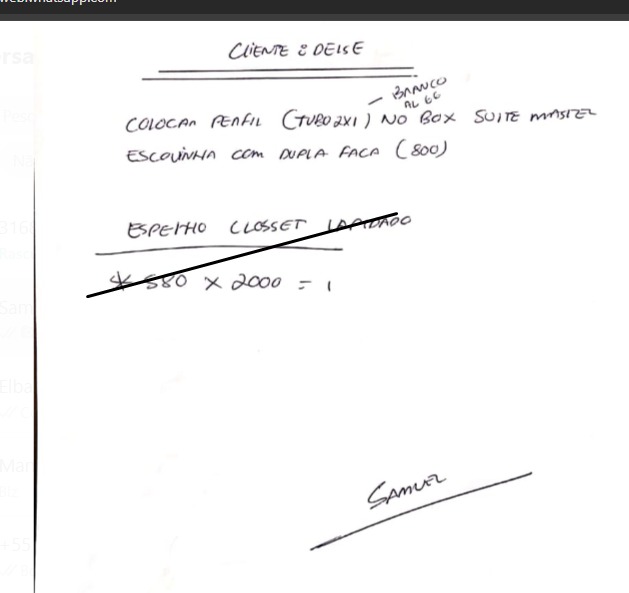 web.whatsapp.com
CLIENTE : DEISE
BRANCO
AL 66
COLOCAR PERFIL (TUBO 2X1) NO BOX SUITE MASTER
ESCOVINHA COM DUPLA FACA (800)
ESPELHO CLOSSET LAPIDADO
* 580 X 2000 = 1
SAMUEL